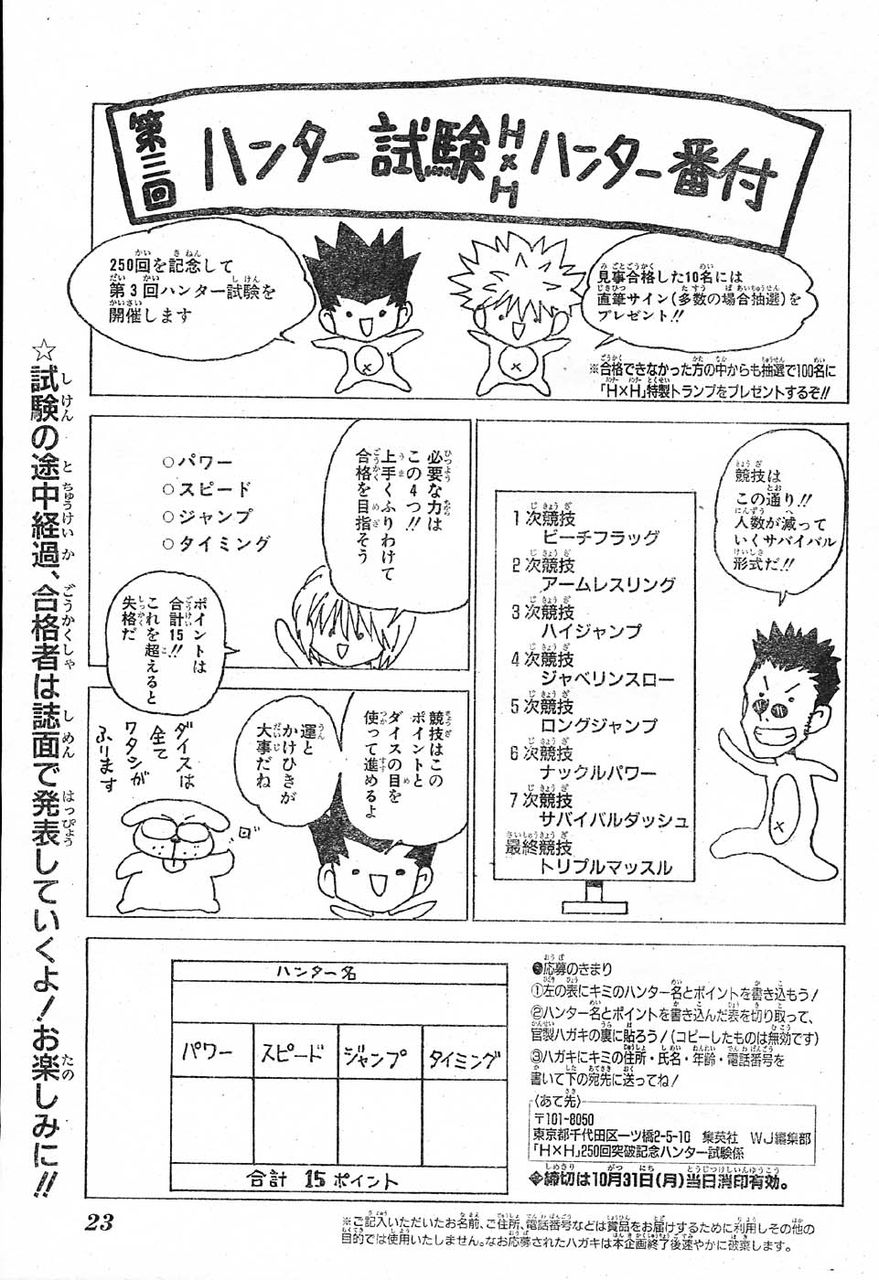 第三回 ハンター試験 H×H ハンター番付
250回を記念して
第3回ハンター試験を
開催します
見事合格した10名には
直筆サイン(多数の場合抽選)を
プレゼント!!
※合格できなかった方の中からも抽選で100名に
「H×H」特製トランプをプレゼントするぞ!!
競技は
この通り!!
人数が減って
いくサバイバル
形式だ!!
1次競技
ビーチフラッグ
2次競技
アームレスリング
3次競技
ハイジャンプ
4次競技
ジャベリンスロー
5次競技
ロングジャンプ
6次競技
ナックルパワー
7次競技
サバイバルダッシュ
最終競技
トリプルマッスル
必要な力は
この4つ!!
上手くふりわけて
合格を目指そう
○パワー
○スピード
○ジャンプ
○タイミング
ポイントは
合計15!!
これを超えると
失格だ
競技はこの
ポイントと
ダイスの目を
使って進めるよ
運と
かけひきが
大事だね
ダイスは
全て
ワタシが
ふります
ハンター名
パワー スピード ジャンプ タイミング
合計 15 ポイント
●応募のきまり
①左の表にキミのハンター名とポイントを書き込もう!
②ハンター名とポイントを書き込んだ表を切り取って、
官製ハガキの裏に貼ろう!(コピーしたものは無効です)
③ハガキにキミの住所・氏名・年齢・電話番号を
書いて下の宛先に送ってね!
〈あて先〉
〒101-8050
東京都千代田区一ツ橋2-5-10 集英社 WJ編集部
「H×H」250回突破記念ハンター試験係
締切は10月31日(月)当日消印有効。
☆試験の途中経過、合格者は誌面で発表していくよ!お楽しみに!!
23
※ご記入いただいたお名前、ご住所、電話番号などは賞品をお届けするために利用しその他の
目的では使用いたしません。なお応募されたハガキは本企画終了後速やかに破棄します。